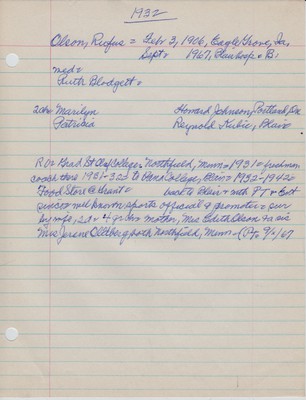 1932
Olson, Rufus = Febr 3, 1906, Eagle Grove, Ia,
Sept = 1967, Blair hosp = B:
med=
Ruth Blodgett =
2ch= Marilyn Howard Johnson, Portland,
Patricia Reynold Kubie, Blair
R O = Grad St Olaf College, Northfield, Minn = 1931 = freshman
coach there 1931-32= to Dana College, Blair = 1932-1942=
Food Store @ Grant = back to Blair = with
since = well known sports official & promoter = sur
by wife, 2d + 4 gr ch = mother, Mrs Edith Olson + a sis
Mrs Jerane Olltberg both Northfield, Minn = 9/ /67